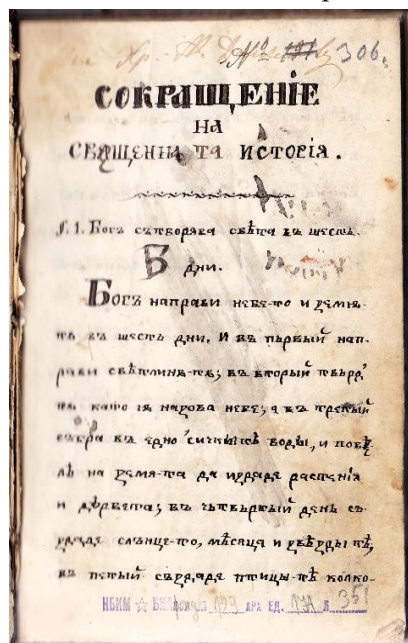 № 306.
СОКРАЩЕНІЕ
НА
СВЯЩЕННА ТА ИСТОРІЯ.
§. 1. Богъ сътворява свѣта въ шесть
дни.
Богъ направи небе-то и земня-
тъ въ шесть дни. И въ първый нап-
рави свѣтлинѫ-тѫ; въ вторый твърд
като іѫ назова небе; а въ третый
събра въ едно сичкытѣ воды, и повѣ
лѣ на земя-та да изради растенія
и дървета; въ четвъртый день съ-
зда слънце-то, мѣсяца и звѣзды тѣ,
въ петый създаде птицы-тѣ колко-
НБКМ ☆ БИА 129 АРХ ЕД. 171 Л 351